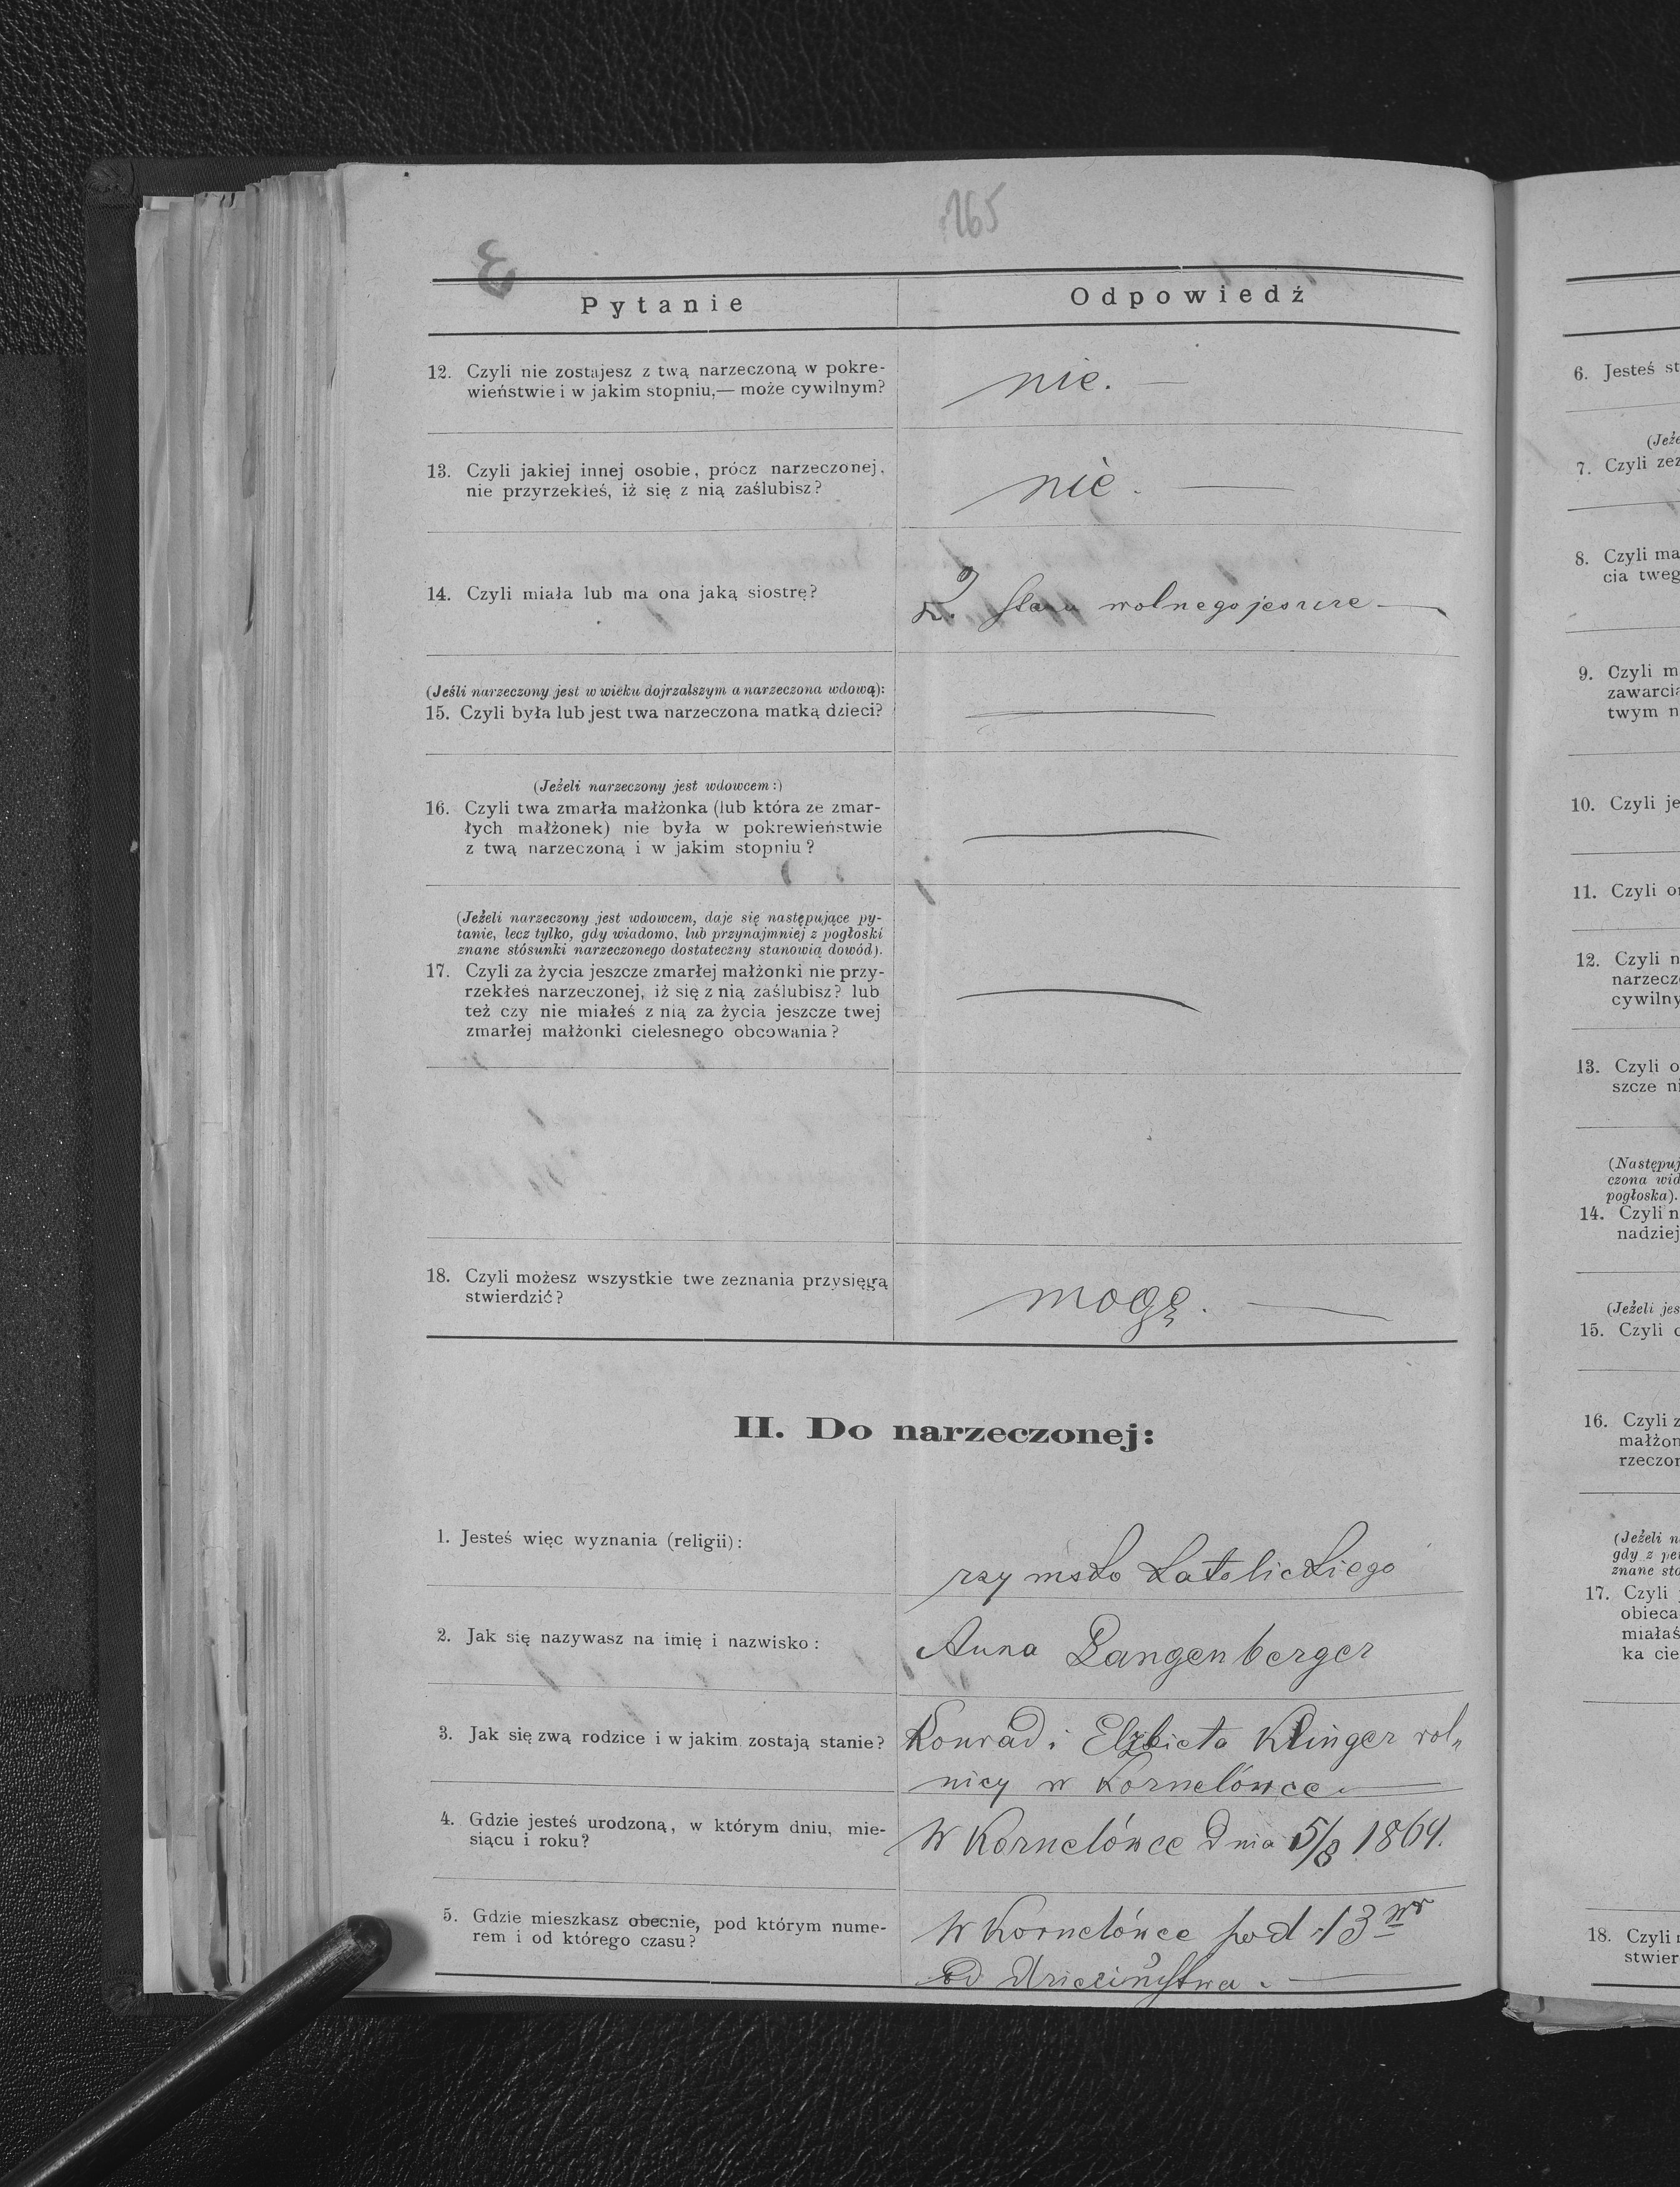 165
3
Pytanie
Odpowiedź
12. Czyli nie zostajesz z twą narzeczoną w pokre-
wieństwie i w jakim stopniu,— może cywilnym?
nie. —
13. Czyli jakiej innej osobie, prócz narzeczonej,
nie przyrzekłeś, iż się z nią zaślubisz?
nie. —
14. Czyli miała lub ma ona jaką siostrę?
2. stanu wolnego jeszcze —
(Jeśli narzeczony jest w wieku dojrzalszym a narzeczona wdową):
15. Czyli była lub jest twa narzeczona matką dzieci?
—
(Jeżeli narzeczony jest wdowcem:)
16. Czyli twa zmarła małżonka (lub która ze zmar-
łych małżonek) nie była w pokrewieństwie
z twą narzeczoną i w jakim stopniu?
—
(Jeżeli narzeczony jest wdowcem, daje się następujące py-
tanie, lecz tylko, gdy wiadomo, lub przynajmniej z pogłoski
znane stósunki narzeczonego dostateczny stanowią dowód).
17. Czyli za życia jeszcze zmarłej małżonki nie przy-
rzekłeś narzeczonej, iż się z nią zaślubisz? lub
też czy nie miałeś z nią za życia jeszcze twej
zmarłej małżonki cielesnego obcowania?
—
18. Czyli możesz wszystkie twe zeznania przysięgą
stwierdzić?
mogę. —
II. Do narzeczonej:
1. Jesteś więc wyznania (religii):
rzymsko katolickiego
2. Jak się nazywasz na imię i nazwisko:
Anna Langenberger
3. Jak się zwą rodzice i w jakim zostają stanie?
Konrad i Elżbieta Klinger rol„
nicy w Kornelówce —
4. Gdzie jesteś urodzoną, w którym dniu, mie-
siącu i roku?
W Kornelówce dnia 5/8 1864.
5. Gdzie mieszkasz obecnie, pod którym nume-
rem i od którego czasu?
W Kornelówce pod 13 nr
od dzieciństwa. —
6. Jesteś st
(Jeże
7. Czyli zez
8. Czyli ma
cia tweg
9. Czyli m
zawarcia
twym n
10. Czyli je
11. Czyli on
12. Czyli n
narzecz
cywilny
13. Czyli o
szcze ni
(Następuj
czona wid
pogłoska).
14. Czyli n
nadziej
(Jeżeli jes
15. Czyli c
16. Czyli z
małżon
rzeczon
(Jeżeli n
gdy z pe
znane sto
17. Czyli
obieca
miałaś
ka cie
18. Czyli
stwier